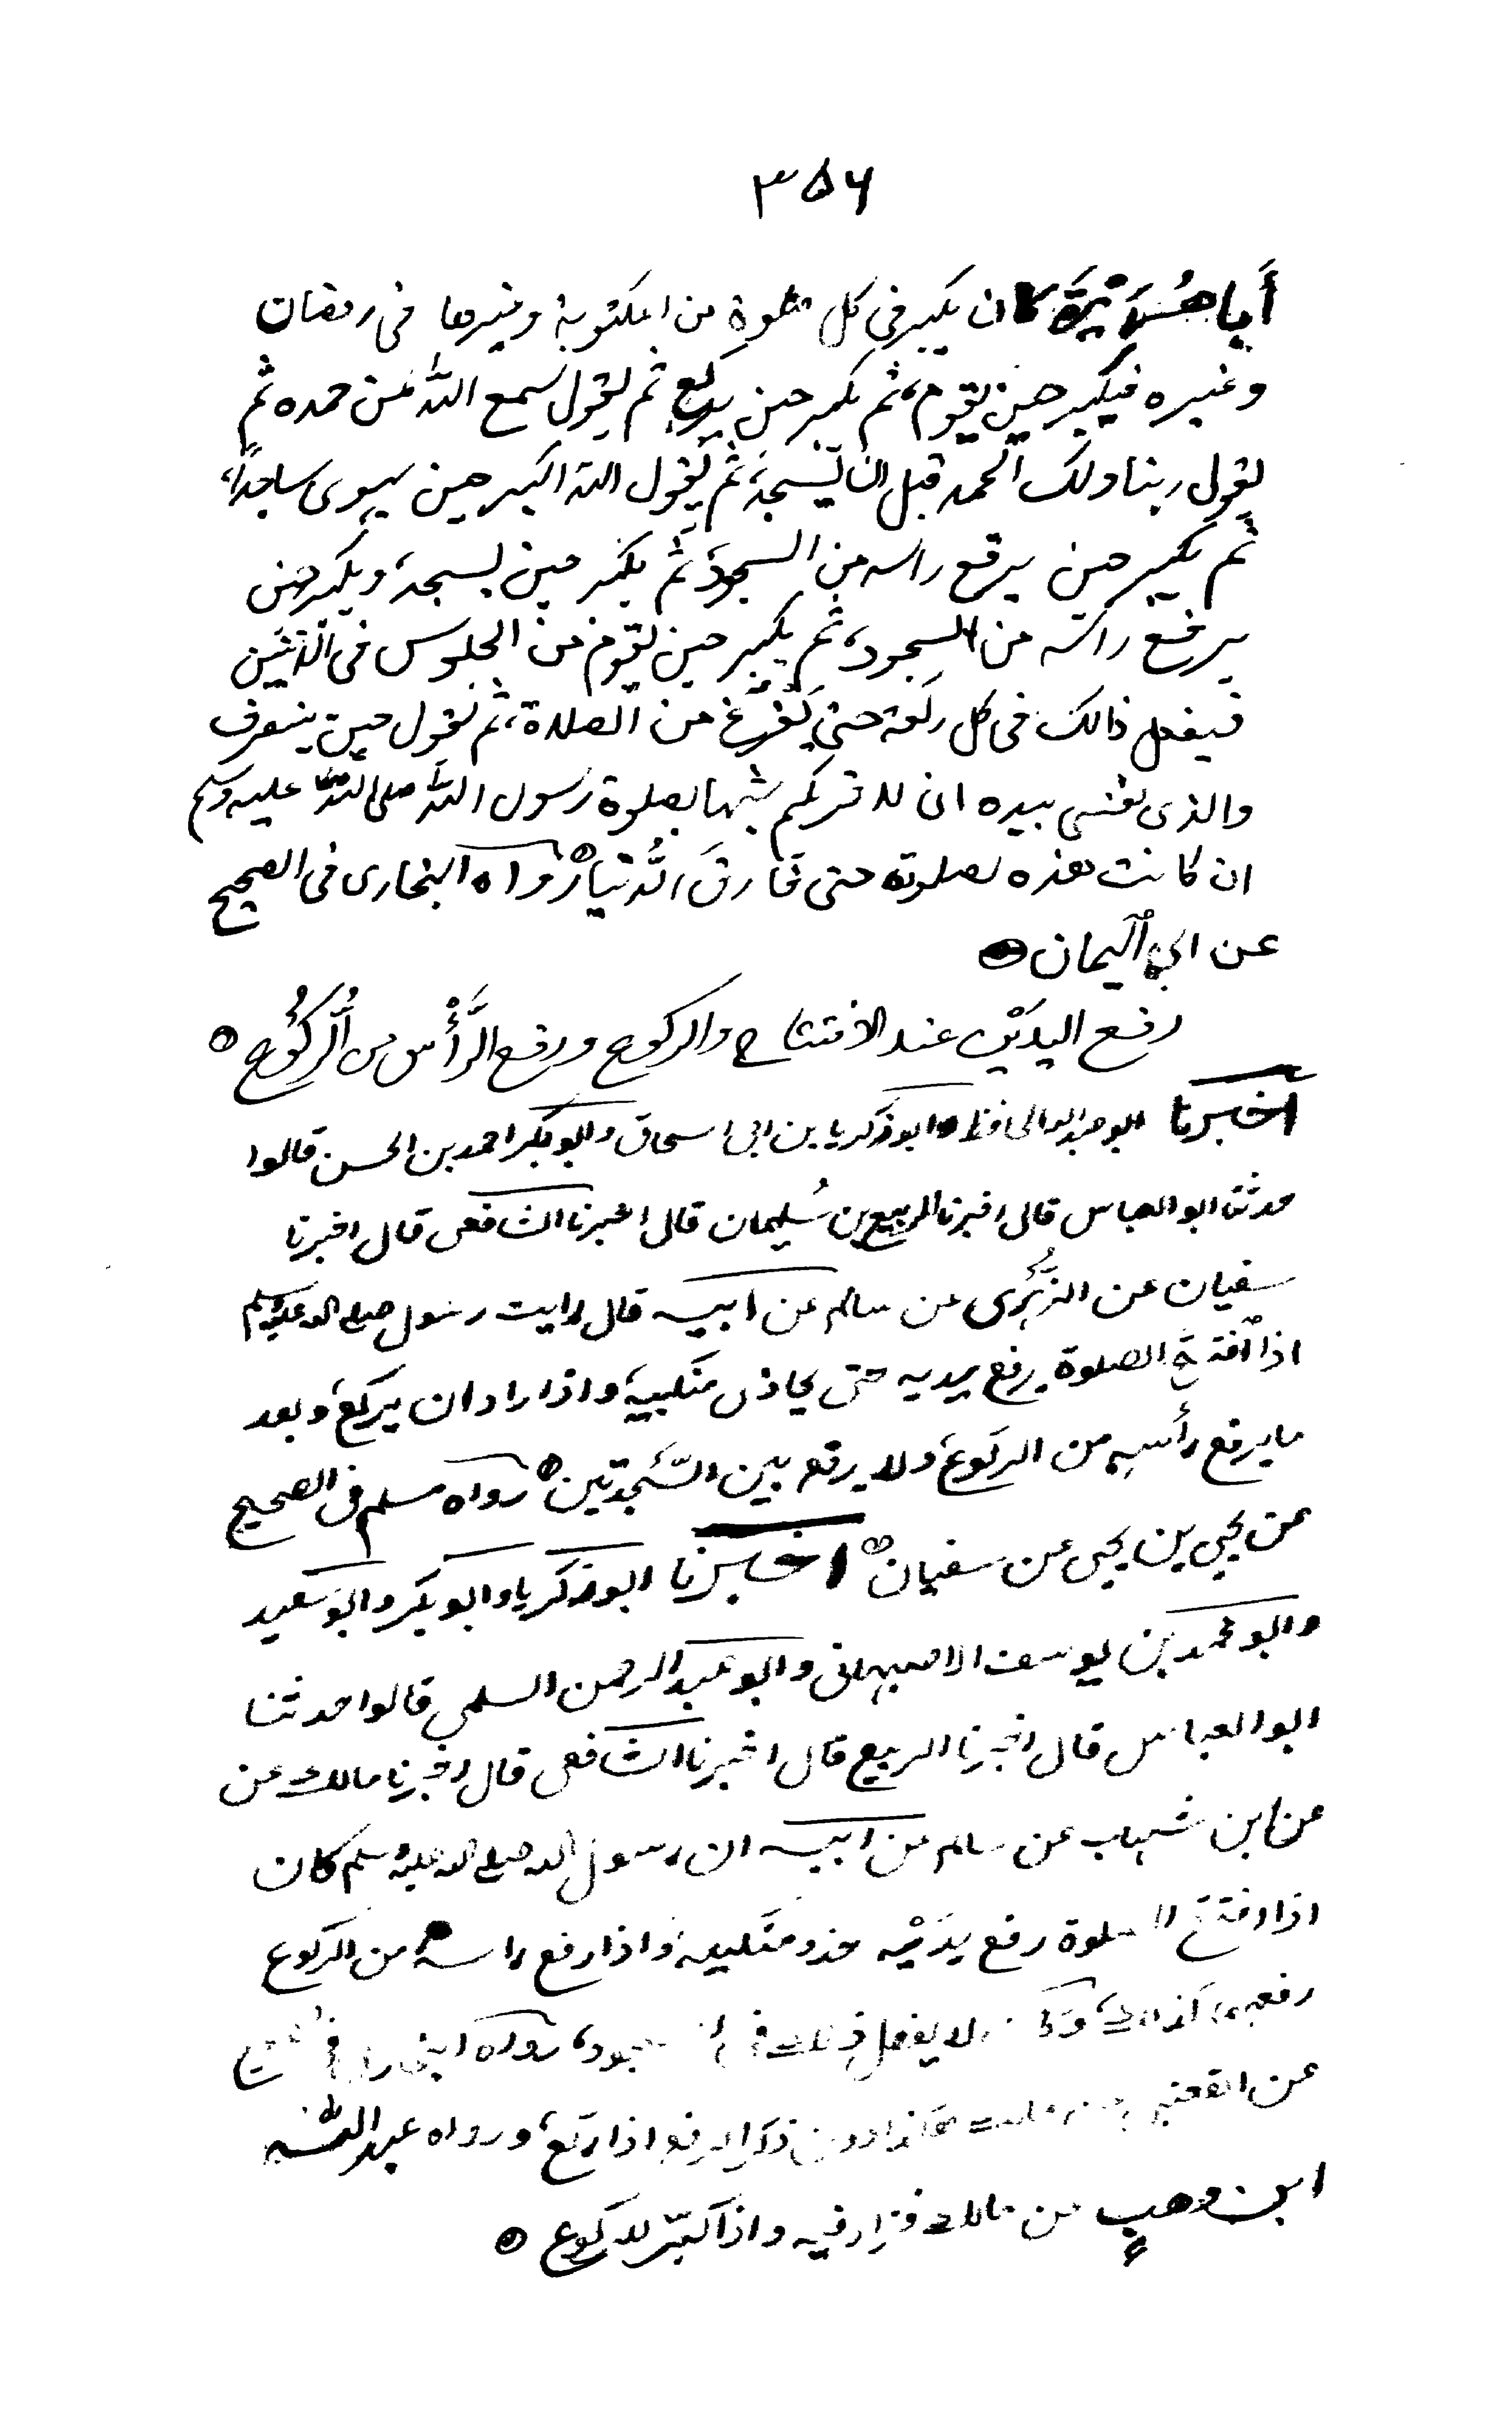 ٣٥٦
أَبا هُرَيْرَةَ كان يكبر في كل صلوة من المكتوبة وغيرها في رمضان
وغيره فيكبر حين يقوم، ثم يكبر حين يركع ثم يقول سمع الله لمن حمده ثم
يقول ربنا ولك الحمد قبل ان يسجد، ثم يقول الله اكبر حين يهوى ساجداً،
ثم يكبر حين يرفع راسه من السجود، ثم يكبر حين يسجد، ويكبر حين
يرفع راسه من السجود، ثم يكبر حين يقوم من الجلوس في اثنتين
فيفعل ذالك في كل ركعة حتى يَفْرُغَ من الصلاة، ثم يقول حين ينصرف
والذى نفسى بيده انى لا قربكم شبها بصلوة رسول الله صلى الله عليه وسلم
ان كانت هذه لصلوته حتى فارقَ الدُّنيا رواه البخارى فى الصحيح
عن ابي اليمان
رفع اليدَيْن عند الافتتاح والركوع ورفع الرَّأْس من الُرُّكُوع
اخبرنا ابو عبد الله الحافظ وابو زكريا بن ابى اسحاق وابو بكر احمد بن الحسن قالوا
حدثنا ابو العباس قال اخبرنا الربيع بن سُليمان قال اخبرنا الشافعى قال اخبرنا
سفيان عن الزُّهرى عن سالم عن ابيه قال رايت رسول صلى الله عليه وسلم
اذا افتتح الصلوة يرفع يديه حتى يحاذى منكبيه، واذا اراد ان يركع، وبعد
ما يرفع رأسه من الركوع، ولا يرفع بين السَّجدتين رواه مسلم فى الصحيح
عن يحيى بن يحيى عن سفيان اخبرنا ابو زكريا وابو بكر وابو سعيد
وابو محمد بن يوسف الاصبهانى وابو عبد الرحمن السلمي قالوا حدثنا
ابو العباس قال اخبرنا الربيع قال اخبرنا الشافعى قال اخبرنا مالك عن
عن ابن شهاب عن سالم عن ابيه ان رسول الله صلى الله عليه وسلم كان
اذا افتتح الصلوة رفع يَدَيْه حذو منكبيه، واذا رفع راسه من الركوع
رفعهما كذلك، وكان لا يفعل ذلك في السجود، رواه البخارى في
عن القعنبي عن مالك هكذا دون ذكر الرفع اذا ركع، ورواه عبد الله
ابن وهبٍ عن مالك فزاد فيه واذا كبّر للركوع